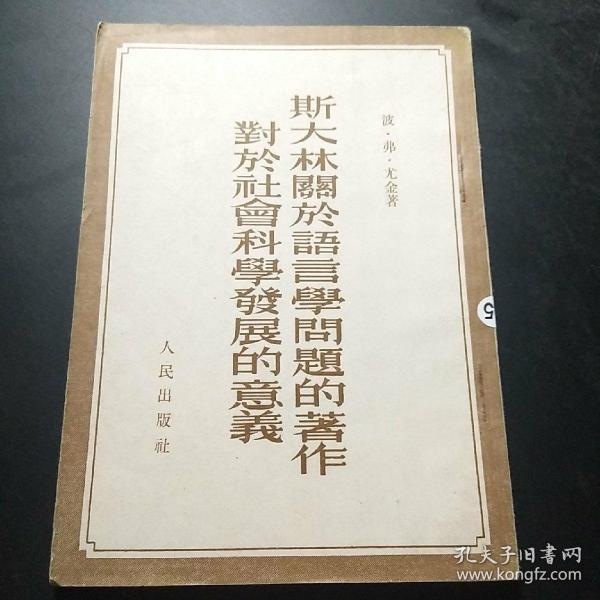 波·弗·尤金著
斯大林關於語言學問題的著作
對於社會科學發展的意義
人民出版社
5
孔夫子旧书网
www.kongfz.com